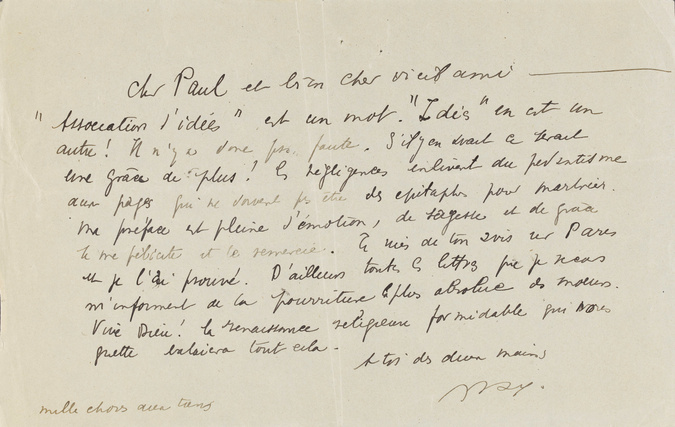 Cher Paul et bien cher vieil ami
"Association d'idées" est un mot. "Idées" en est un
autre! Il n'y a donc pas faute. S'il y en avait ce serait
une grâce de plus! Les négligences enlèvent du pédantisme
aux pages qui ne doivent pas être des épitaphes pour marbrier.
Ma préface est pleine d'émotion, de sagesse et de grâce
Je me félicite et te remercie. Je suis de ton avis sur Paris
et je l'ai prouvé. D'ailleurs toutes les lettres que je reçois
m'informent de la pourriture la plus absolue des mœurs.
Vive Dieu! la renaissance religieuse formidable qui nous
guette balaiera tout cela.
A toi des deux mains
Max.
mille choses aux tiens